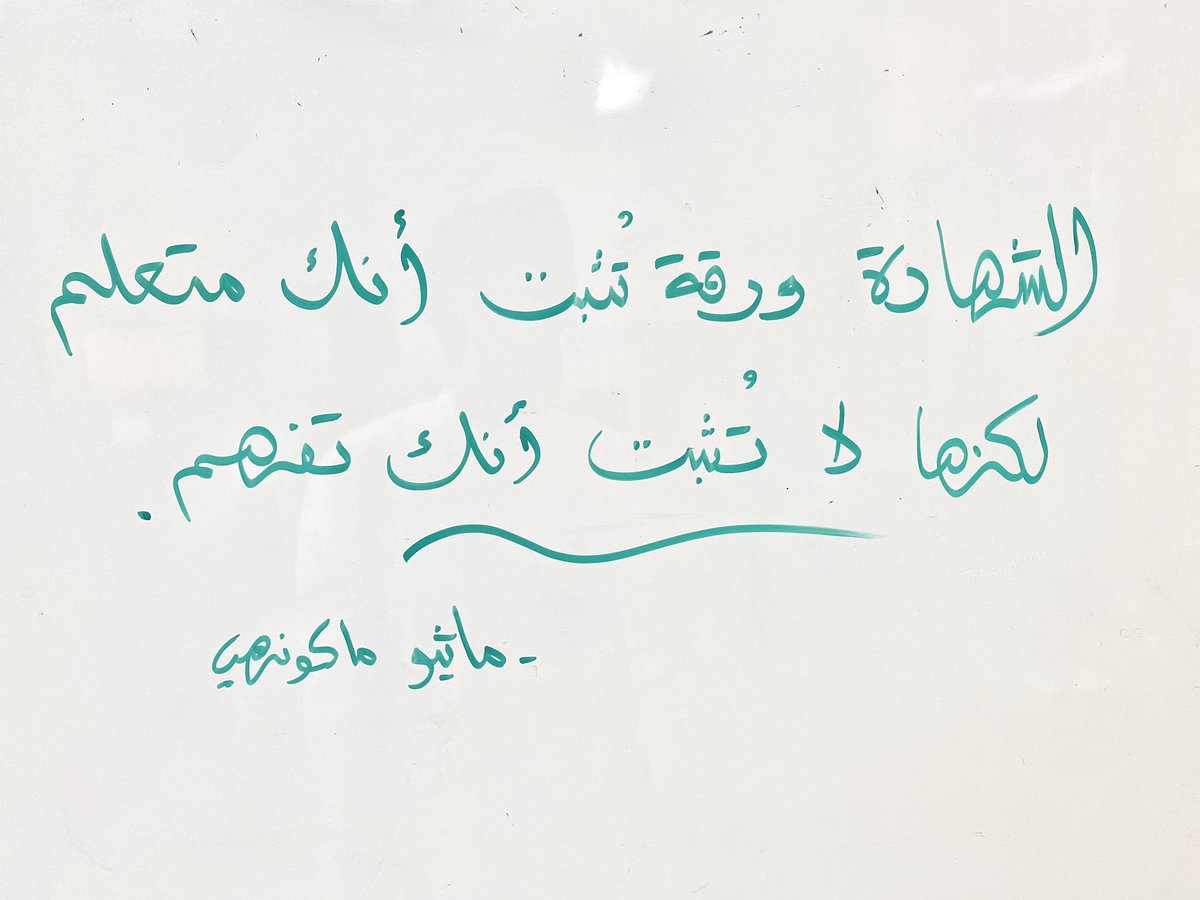 الشهادة ورقة تُثبت أنك متعلم
لكنها لا تُثبت أنك تفهم.
- ماثيو ماكونهي